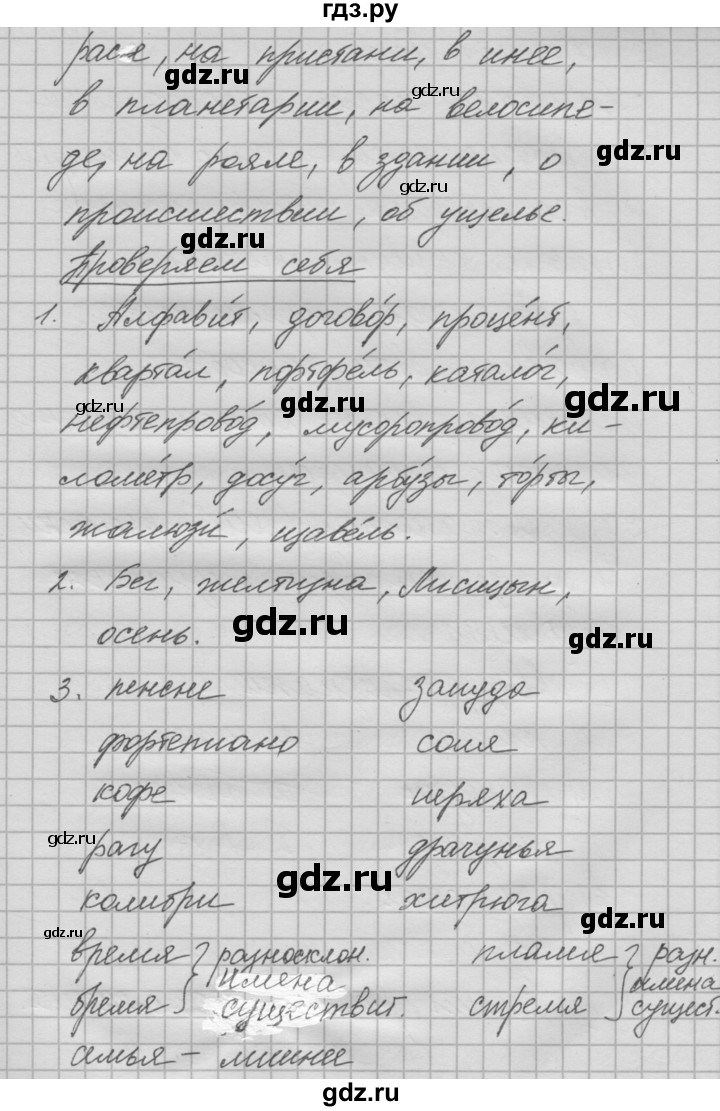 гдз.ру
расе, на пристани, в инее,
в планетарии, на велосипе-
де, на рояле, в здании, о
происшествии, об ущелье.
Проверяем себя
1. Алфави́т, догово́р, проце́нт,
кварта́л, портфе́ль, катало́г,
нефтепрово́д, мусоропрово́д, ки-
ломе́тр, досу́г, арбу́зы, то́рты,
жалюзи́, щаве́ль.
2. Бег, желтизна, Лисицын,
осень.
3. пенсне зануда
фортепиано соня
кофе неряха
рагу драчунья
колибри хитрюга
время } разносклон. пламя } разн.
имена имена
бремя существит. стремя сущест.
семья – лишнее
gdz.ru